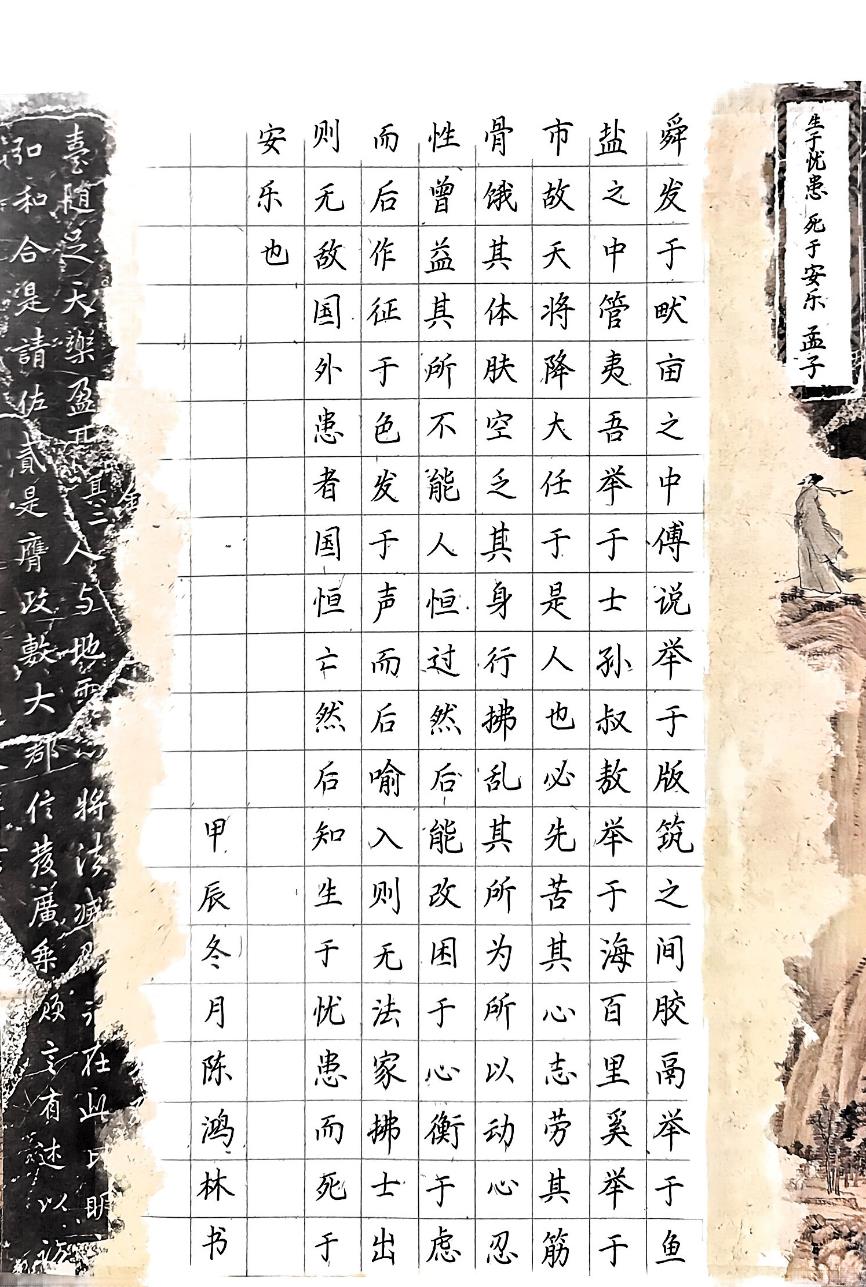 生于忧患 死于安乐 孟子
舜发于畎亩之中傅说举于版筑之间胶鬲举于鱼
盐之中管夷吾举于士孙叔敖举于海百里奚举于
市故天将降大任于是人也必先苦其心志劳其筋
骨饿其体肤空乏其身行拂乱其所为所以动心忍
性曾益其所不能人恒过然后能改困于心衡于虑
而后作征于色发于声而后喻入则无法家拂士出
则无敌国外患者国恒亡然后知生于忧患而死于
安乐也
甲辰冬月陈鸿林书
臺随足天樂盈 其二人与地 将法 在此 明
和合是請佐貳是膺政敷大郡信茂廣乘 言有述以